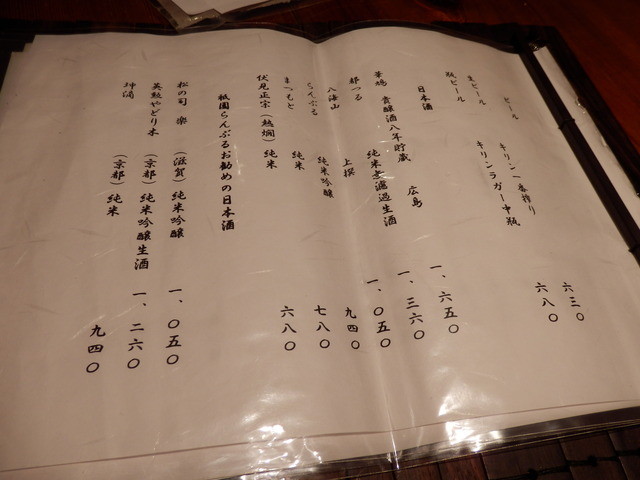 ビール
生ビール キリン一番搾り 六三〇
瓶ビール キリンラガー中瓶 六八〇
日本酒
華鳩 貴醸酒八年貯蔵 広島 一、六五〇
都つる 純米無濾過生酒 一、三六〇
八海山 上撰 一、〇五〇
らんぷる 純米吟醸 九四〇
まつもと 純米 七八〇
伏見正宗（熱燗） 純米 六八〇
祇園らんぷるお勧めの日本酒
松の司 楽 （滋賀）純米吟醸 一、〇五〇
英勲やどり木 （京都）純米吟醸生酒 一、二六〇
坤滴 （京都）純米 九四〇